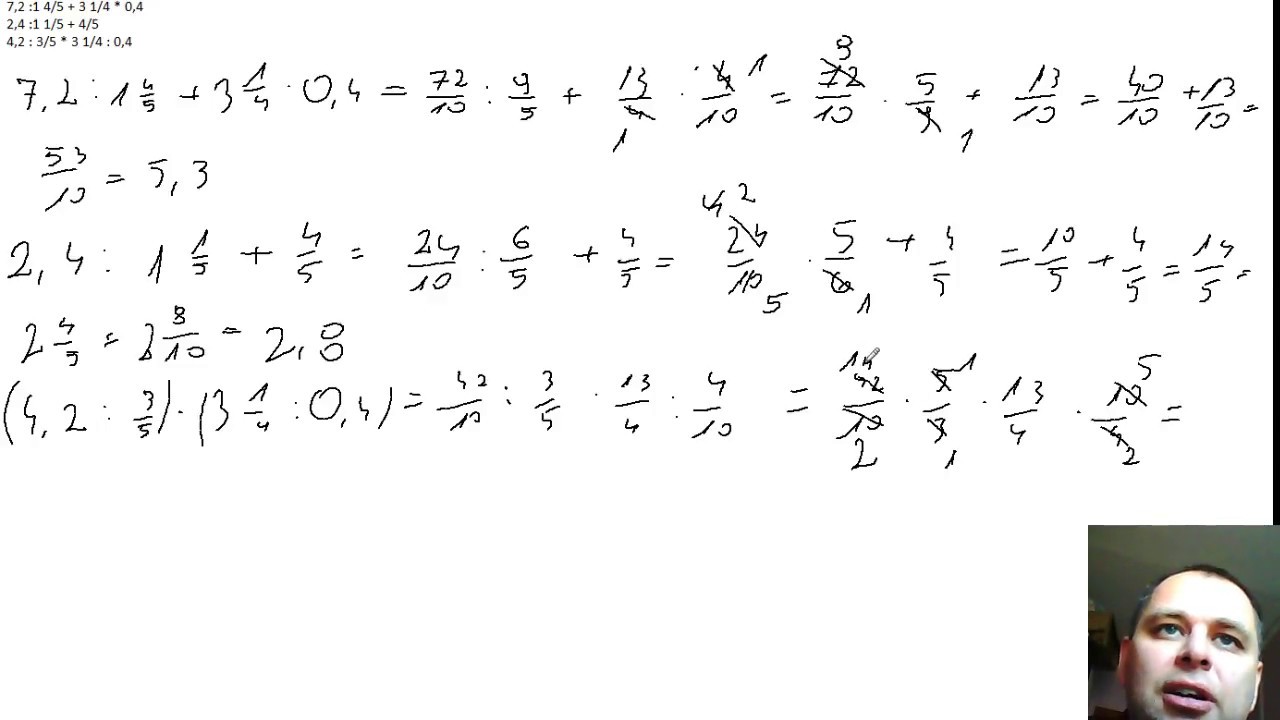 7,2 :1 4/5 + 3 1/4 * 0,4
2,4 :1 1/5 + 4/5
4,2 : 3/5 * 3 1/4 : 0,4
7,2 : 1 4/5 + 3 1/4 · 0,4 = 72/10 : 9/5 + 13/4 1 · 4/10 1 = 72/10 8 · 5/9 1 + 13/10 = 40/10 + 13/10 =
53/10 = 5,3
2,4 : 1 1/5 + 4/5 = 24/10 : 6/5 + 4/5 = 4 2 24/10 5 · 5/6 1 + 4/5 = 10/5 + 4/5 = 14/5 =
2 4/5 = 2 8/10 = 2,8
(4,2 : 3/5) · (3 1/4 : 0,4) = 42/10 : 3/5 · 13/4 : 4/10 = 14 42/10 2 · 5/3 1 1 · 13/4 · 10/4 5 2 =